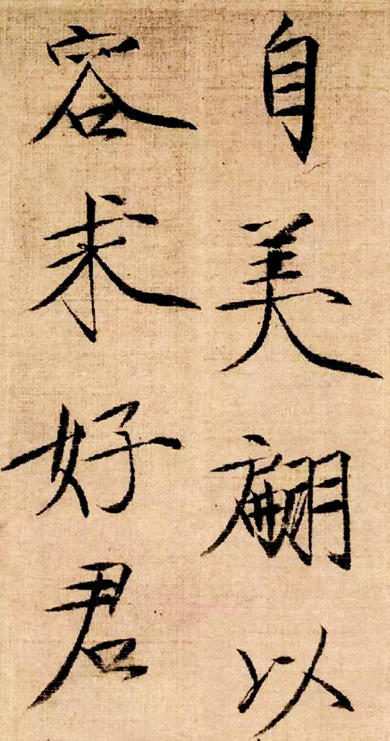 自美翩以
容求好君